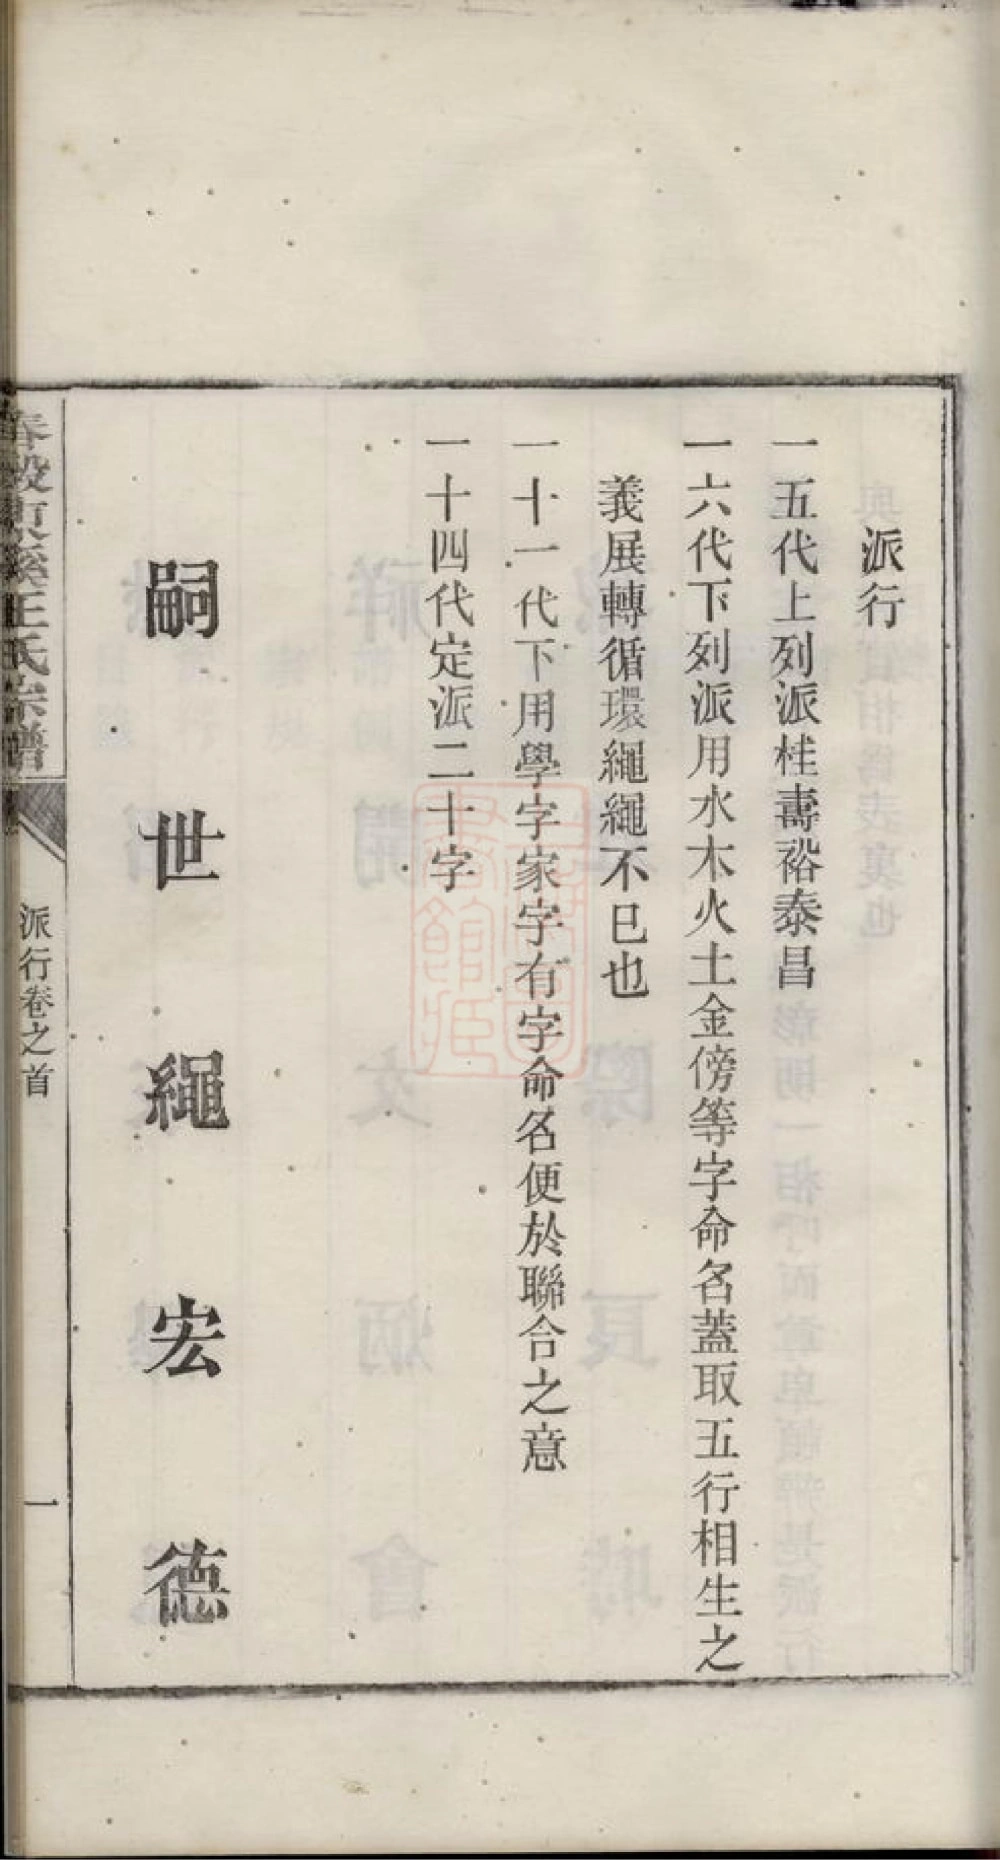 派行
一五代上列派桂壽裕泰昌
一六代下列派用水木火土金傍等字命名蓋取五行相生之
義展轉循環繩繩不已也
一十一代下用學字家字有字命名便於聯合之意
一十四代定派二十字
嗣世繩宏德
春穀東溪王氏宗譜
派行卷之首
一